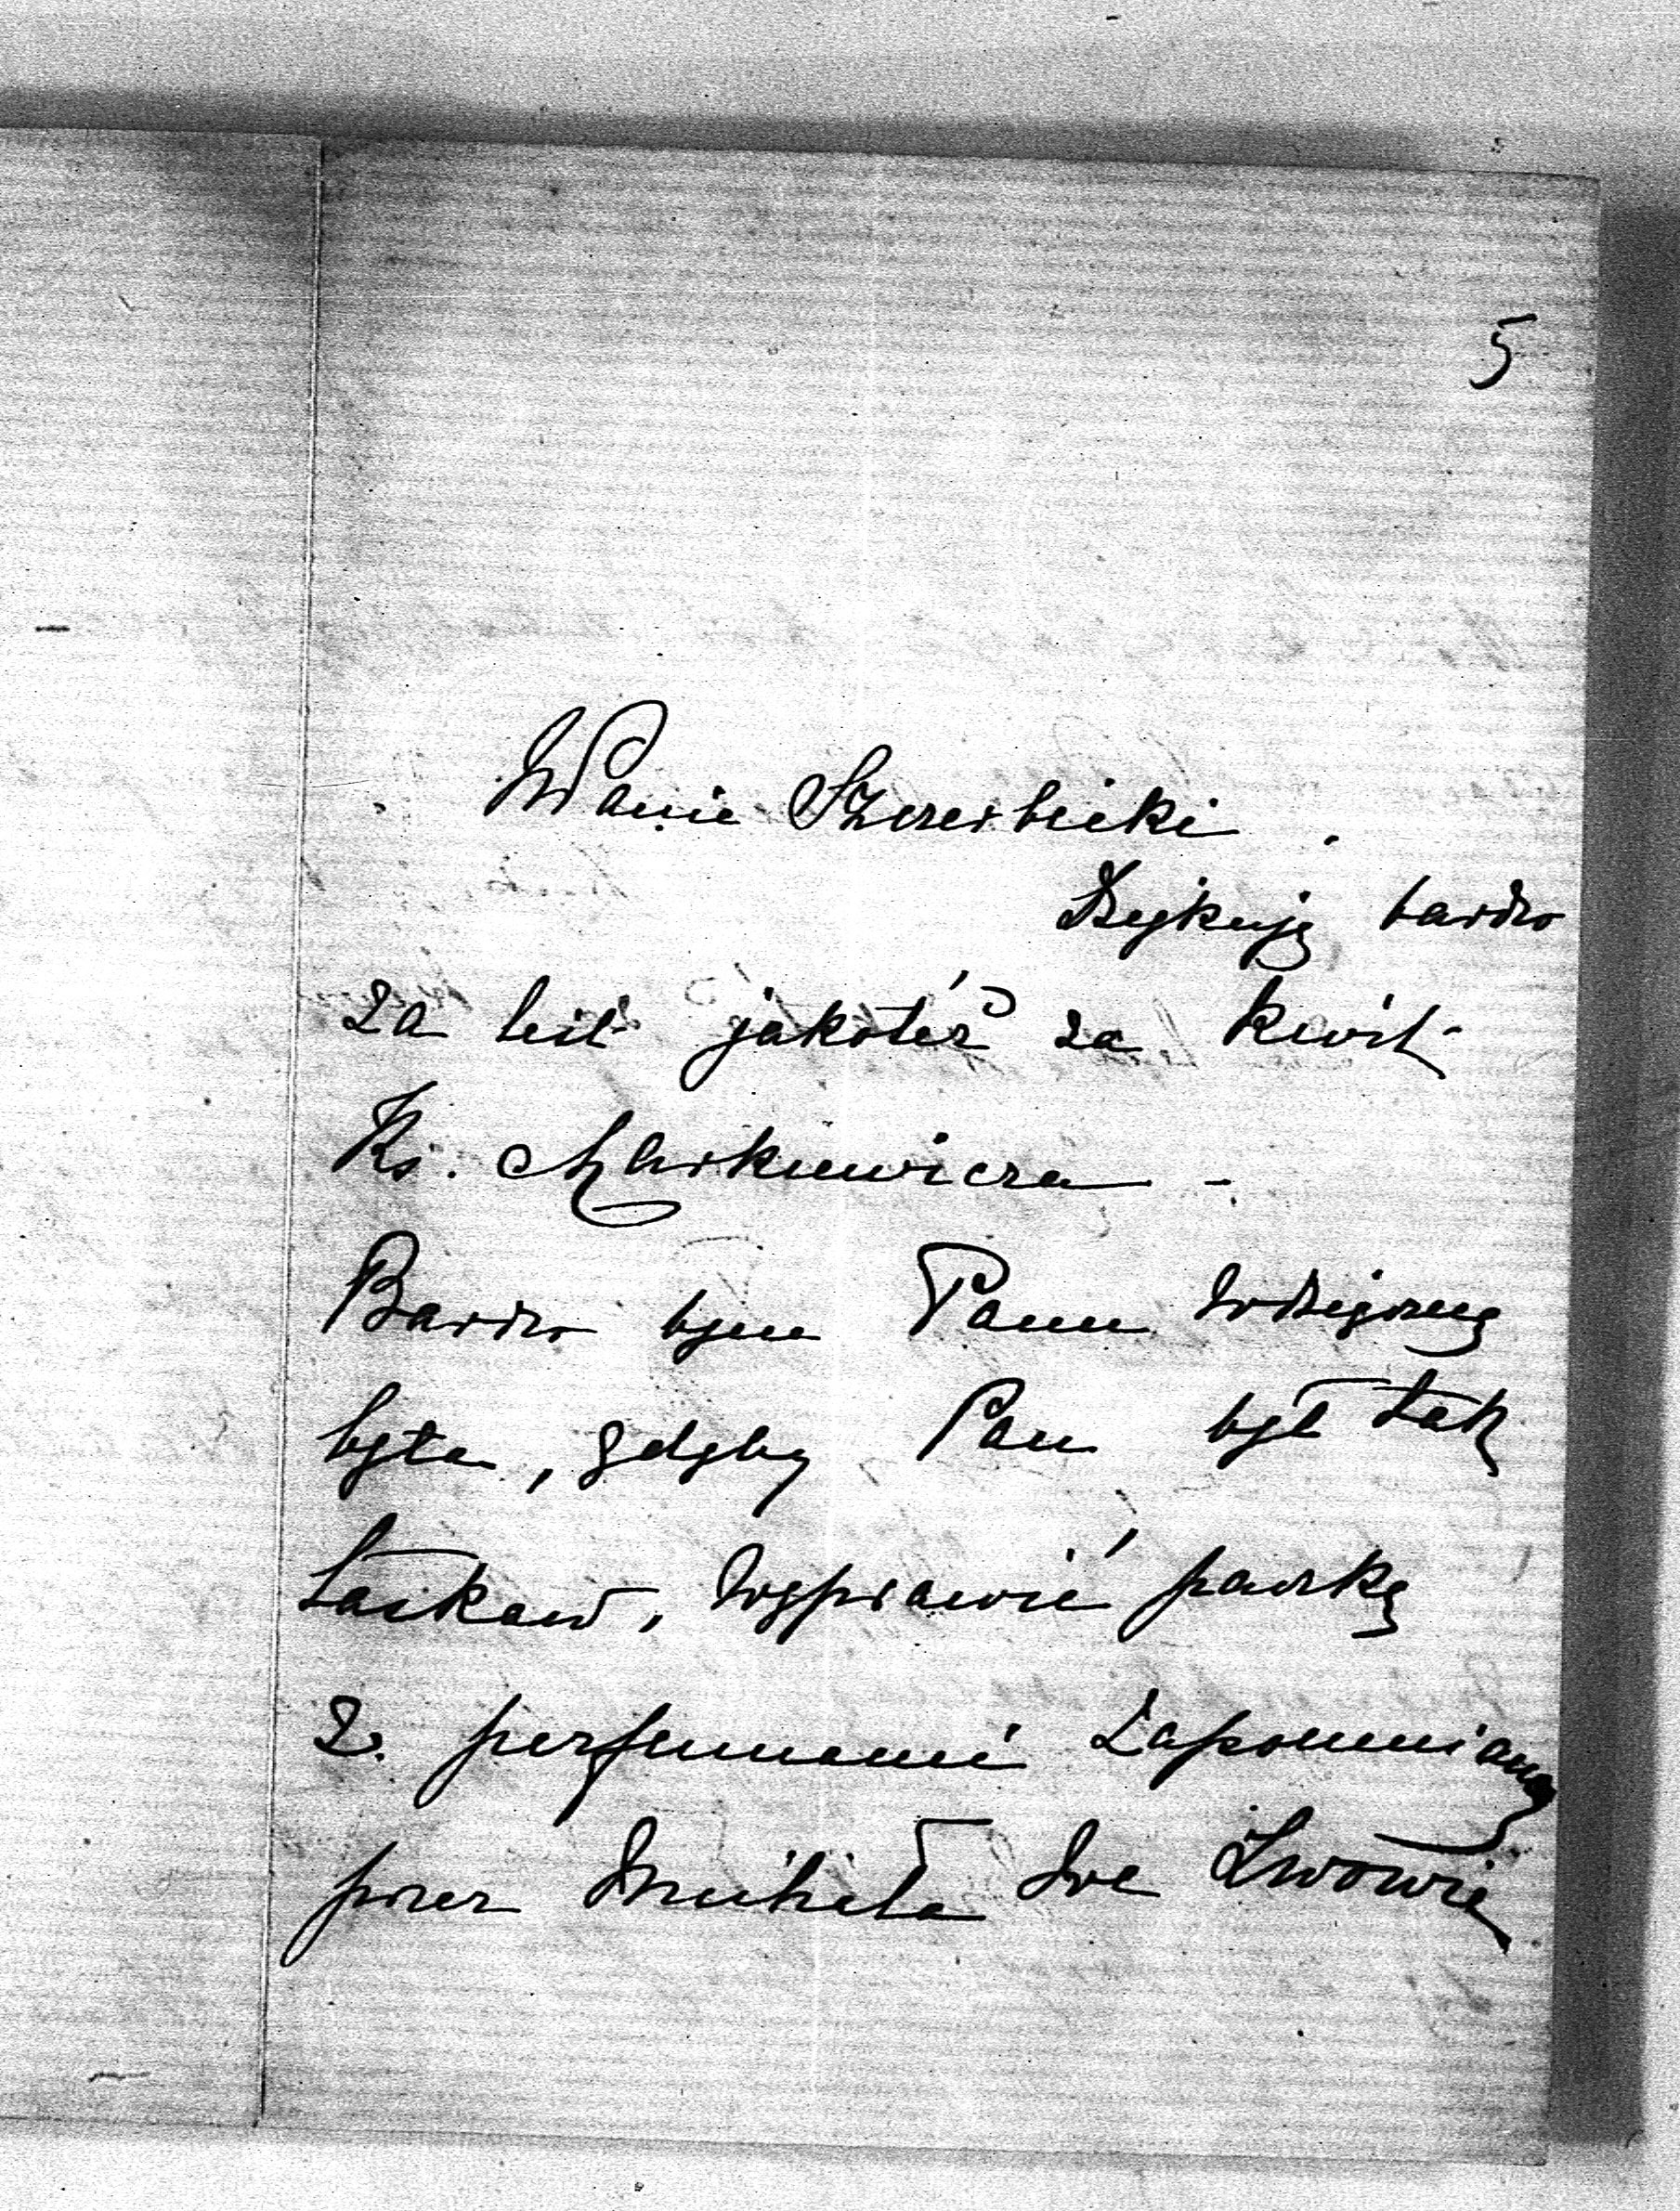 5
WPanie Szczerbicki.
Dziękuję bardzo
za list jakoteż za kwit
Ks. Markiewicza -
Bardzo bym Panu wdzięczną
była, gdyby Pan był tak
łaskaw, wyprawić paczkę
z perfumami zapomnianą
przez Michała we Lwowie